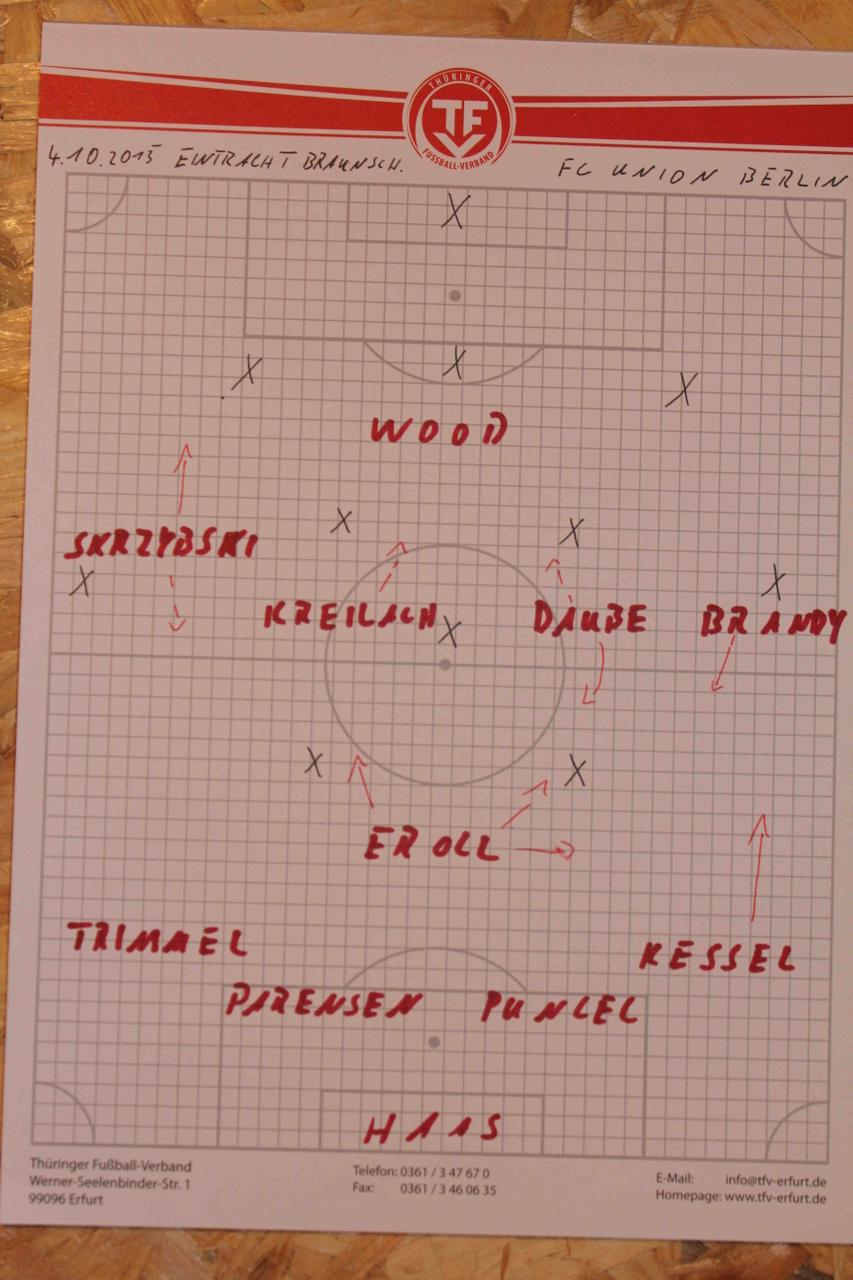 THÜRINGER
TF
FUSSBALL-VERBAND
4.10.2015 EINTRACHT BRAUNSCH. FC UNION BERLIN
X
X X X
WOOD
X X
SKRZYBSKI
X X
KREILACH DAUBE BRANDY
X
X X
EROLL
TRIMMEL KESSEL
PARENSEN PUNCEL
HAAS
Thüringer Fußball-Verband Telefon: 0361 / 3 47 67 0 E-Mail: info@tfv-erfurt.de
Werner-Seelenbinder-Str. 1 Fax: 0361 / 3 46 06 35 Homepage: www.tfv-erfurt.de
99096 Erfurt